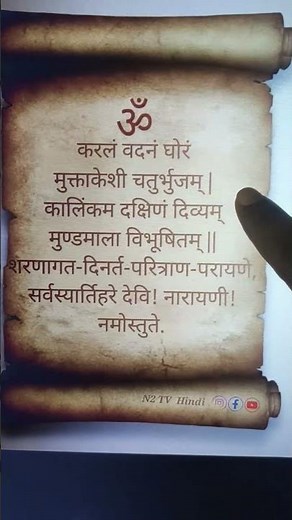 ॐ
करलं वदनं घोरं
मुक्ताकेशी चतुर्भुजम् |
कालिंकम दक्षिणं दिव्यम्
मुण्डमाला विभूषितम् ||
शरणागत-दिनर्त-परित्राण-परायणे,
सर्वस्यार्तिहरे देवि! नारायणी!
नमोस्तुते.
N2 TV Hindi